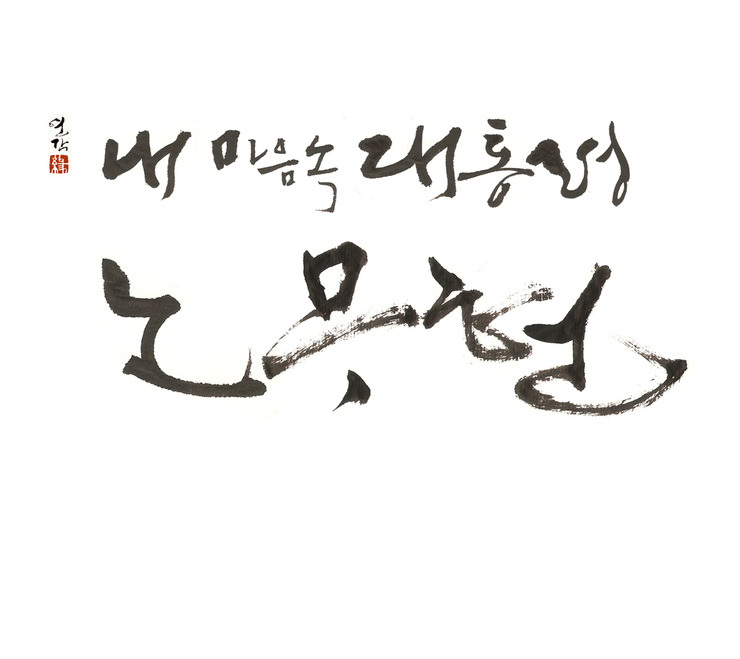 내 마음속 대통령
노무현